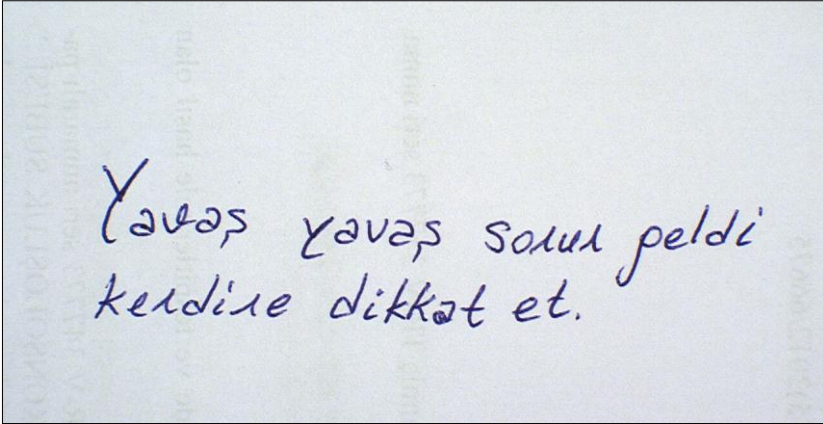 Yavaş yavaş sonun geldi
kendine dikkat et.